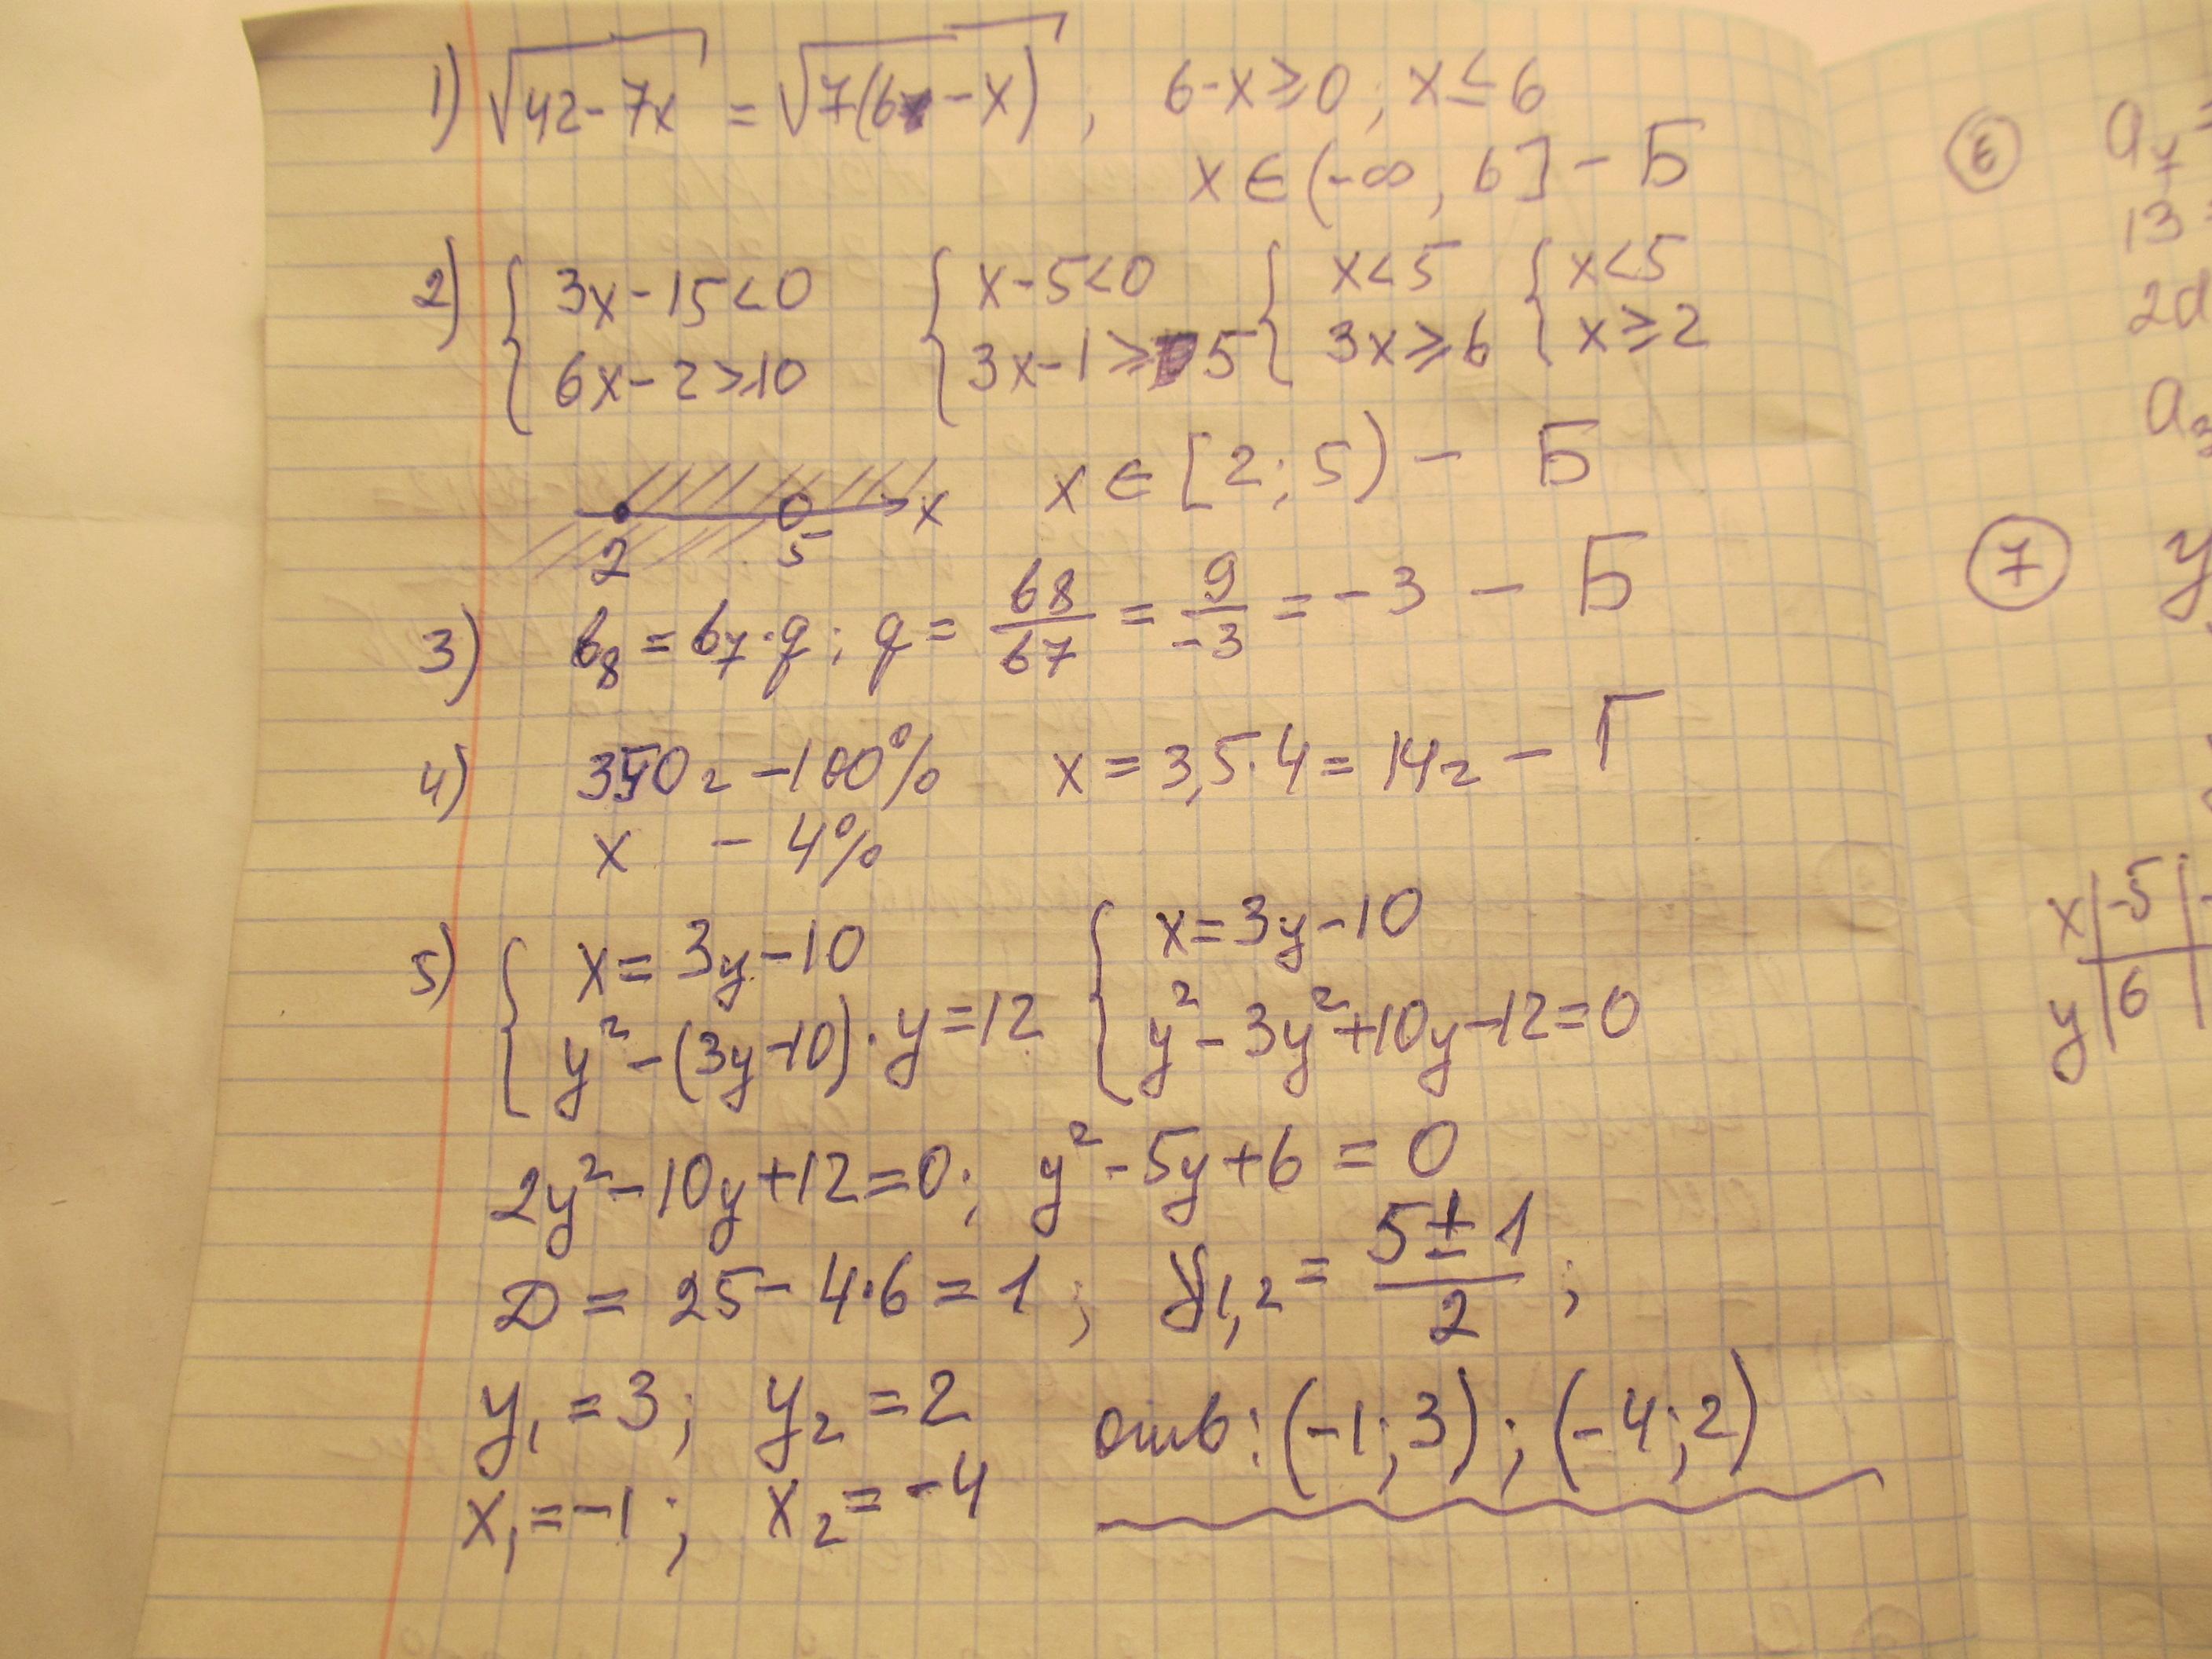 1) √42-7x = √7(6-x) ; 6-x≥0 ; x≤6
x∈(-∞, 6] - Б
2) { 3x-15<0 { x-5<0 { x<5 { x<5
6x-2≥10 3x-1≥5 3x≥6 x≥2
x x∈[2;5) - Б
2 5
3) b₈=b₇·q ; q = b8/b7 = 9/-3 = -3 - Б
4) 350г -100% x=3,5·4=14г - Г
x - 4%
5) { x=3y-10 { x=3y-10
y²-(3y-10)·y=12 y²-3y²+10y-12=0
2y²-10y+12=0; y²-5y+6=0
D=25-4·6=1 ; y₁,₂ = 5±1/2 ;
y₁=3; y₂=2 отв: (-1;3); (-4;2)
x₁=-1 ; x₂=-4
6 a₇ =
13
2d
a₃
7 y
x -5
y 6